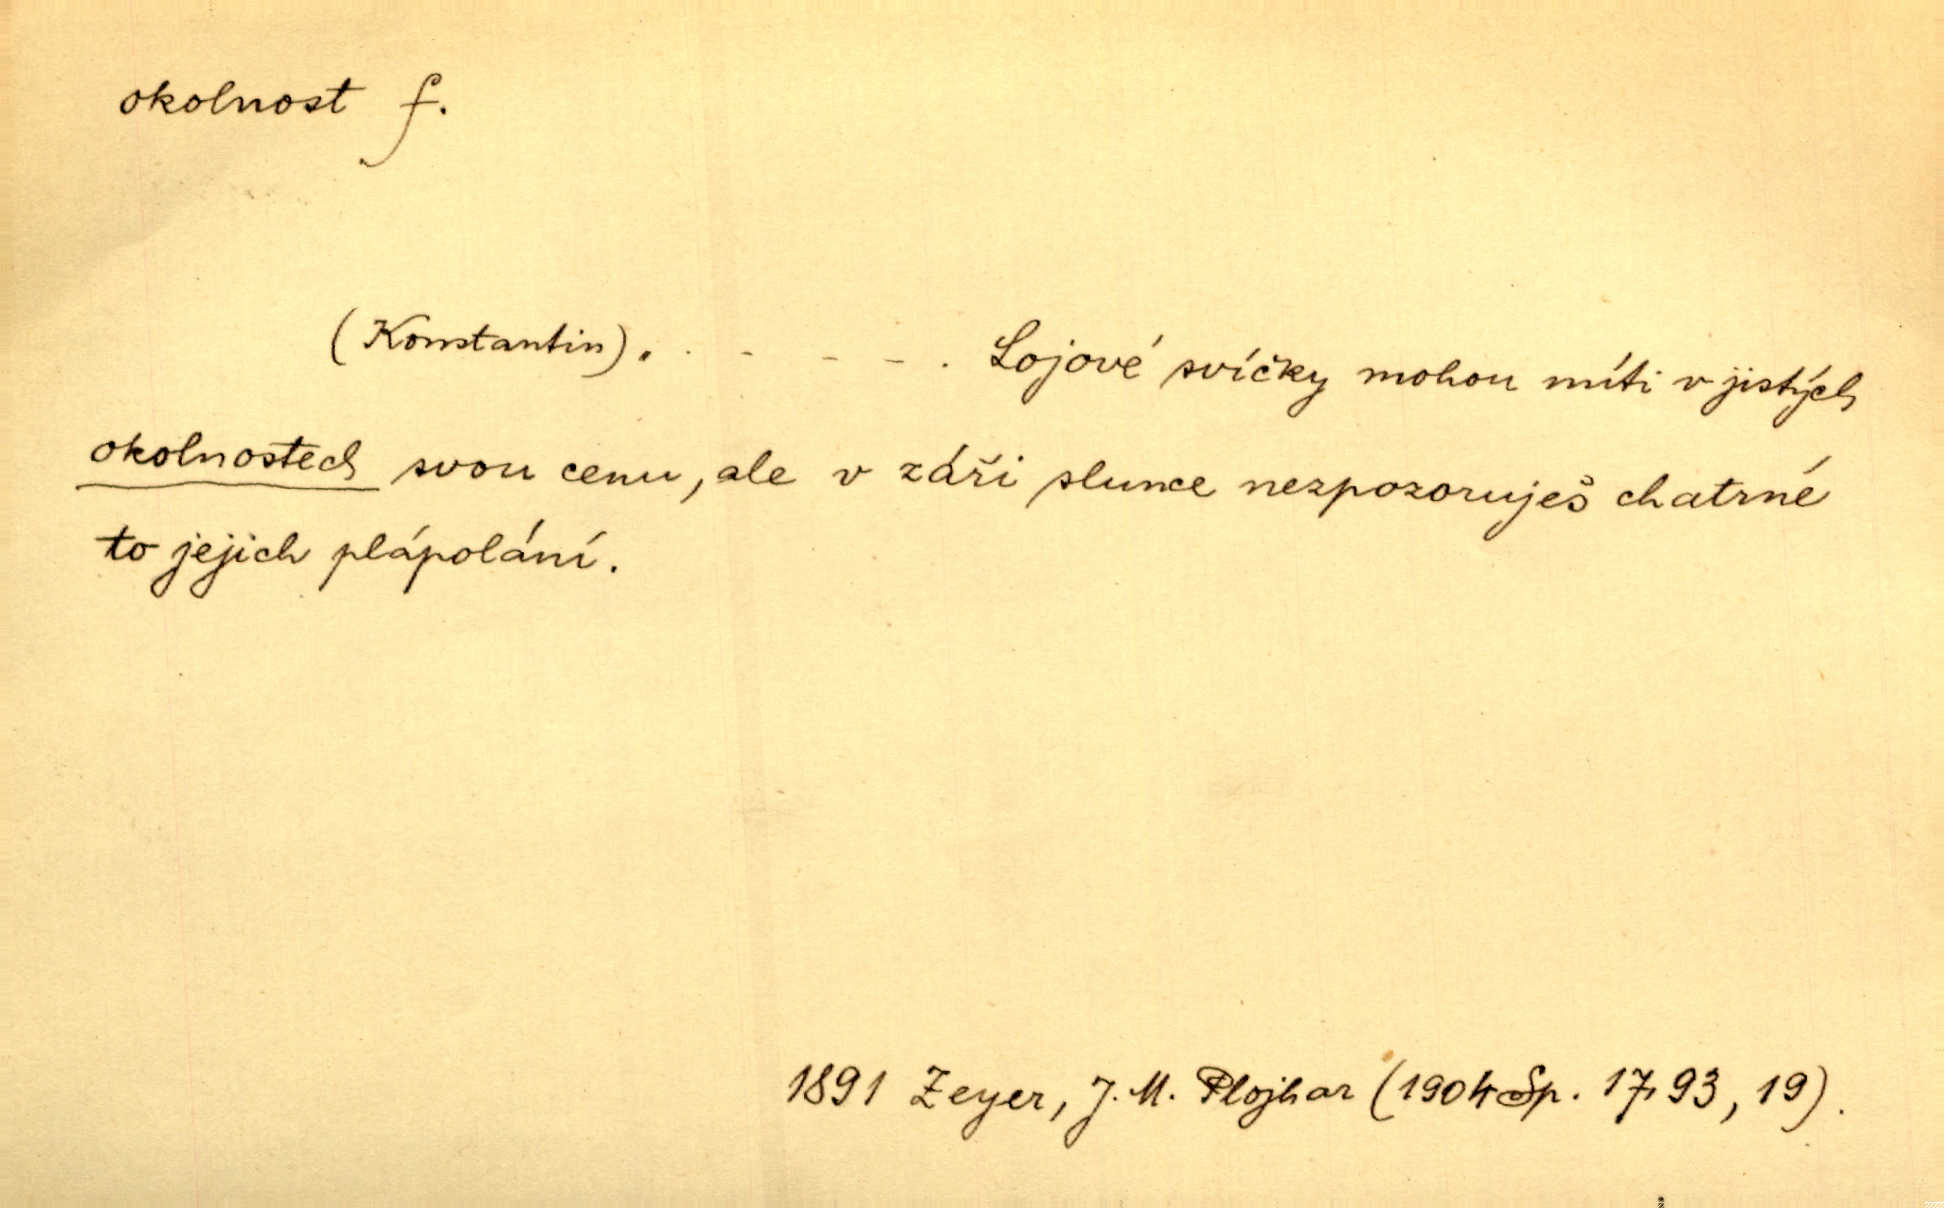 okolnost f.
(Konstantin). . - - - . Lojové svíčky mohou míti v jistých
okolnostech svou cenu, ale v záři slunce nezpozoruješ chatrné
to jejich plápolání.
1891 Zeyer, J. M. Plojhar (1904 Sp. 17, 93, 19).